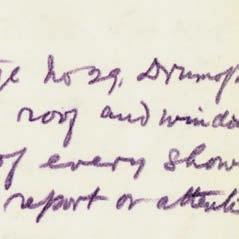 No 29, Drumop
roof and window
of every show
report or attenti